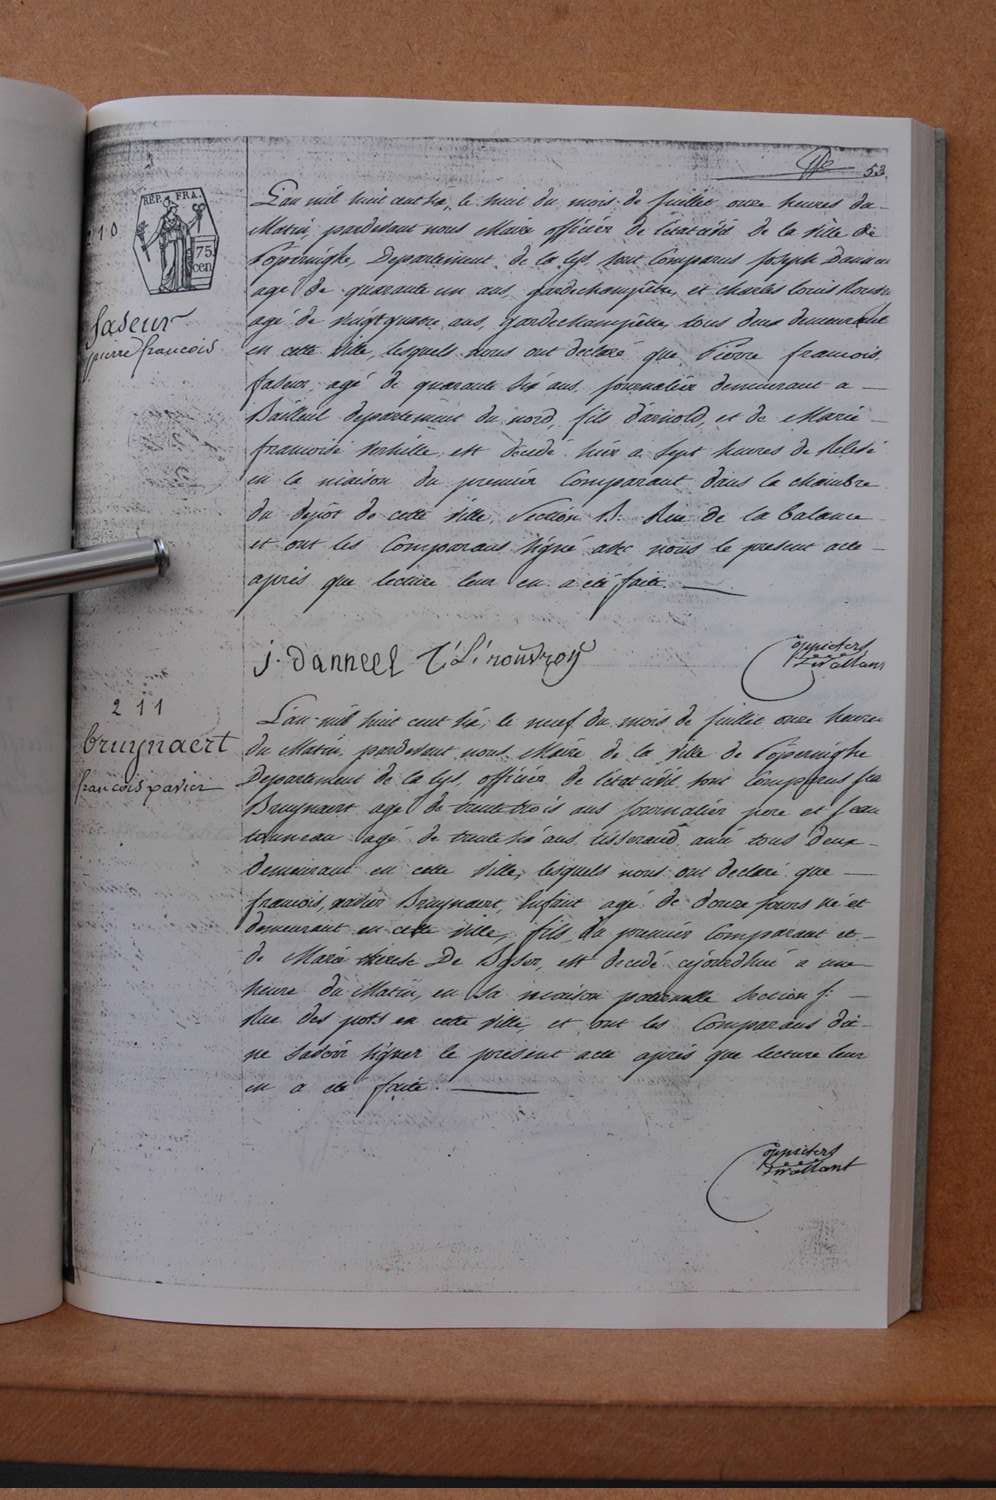 53.
REP. FRA.
75
cen
210
faseur
pierre francois
L'an mil huit cent six, le huit du mois de juillet onze heures du
Matin, pardevant nous Maire officier de l'état civil de la ville de
Poperinghe, Departement de la Lys sont Comparus Joseph Danneel
agé de quarante un ans, gardechampêtre, et charles Louis
agé de vingt quatre ans, Gardechampêtre, tous deux demeurant
en cette Ville, lesquels nous ont déclaré que Pierre francois
faseur, agé de quarante six ans, journalier demeurant a
Bailleul departement du nord, fils d'arnold, et de Marie
francoise verhille, est decedé hier a sept heures de relevé
en la maison du premier Comparant dans la chambre
du depôt de cette Ville, Section B. Rue de la balance
et ont les Comparans signé avec nous le present acte
après que lecture leur en a été faite.
j. Danneel C: L: rouvroy
211
bruynaert
francois xavier
L'an mil huit cent six, le neuf du mois de juillet onze heures
du Matin, pardevant nous Maire de la ville de Poperinghe
Departement de la Lys, officier de l'etat civil sont Comparus
Bruynaert agé de trente trois ans journalier pere et Jean
tonneau agé de trente six ans tisserand ami tous deux
demeurant en cette Ville, lesquels nous ont declaré que
francois, xavier Bruynaert, Enfant agé de douze jours né et
demeurant en cette ville, fils du premier Comparant et
de Marie therese De, est decedé cejourdhui a une
heure du Matin, en sa maison paternelle Section f:
Rue des pots en cette ville, et ont les Comparans dit
ne savoir signer le present acte après que lecture leur
en a eté faite.